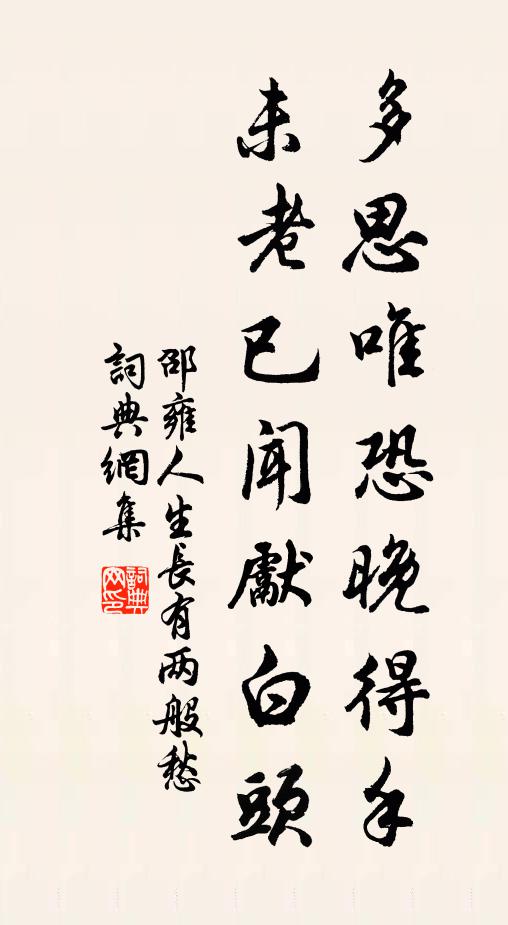 多思唯恐晚得手
未老已聞獻白頭
邵雍人生長有兩般愁
詞典網集
詞典網印